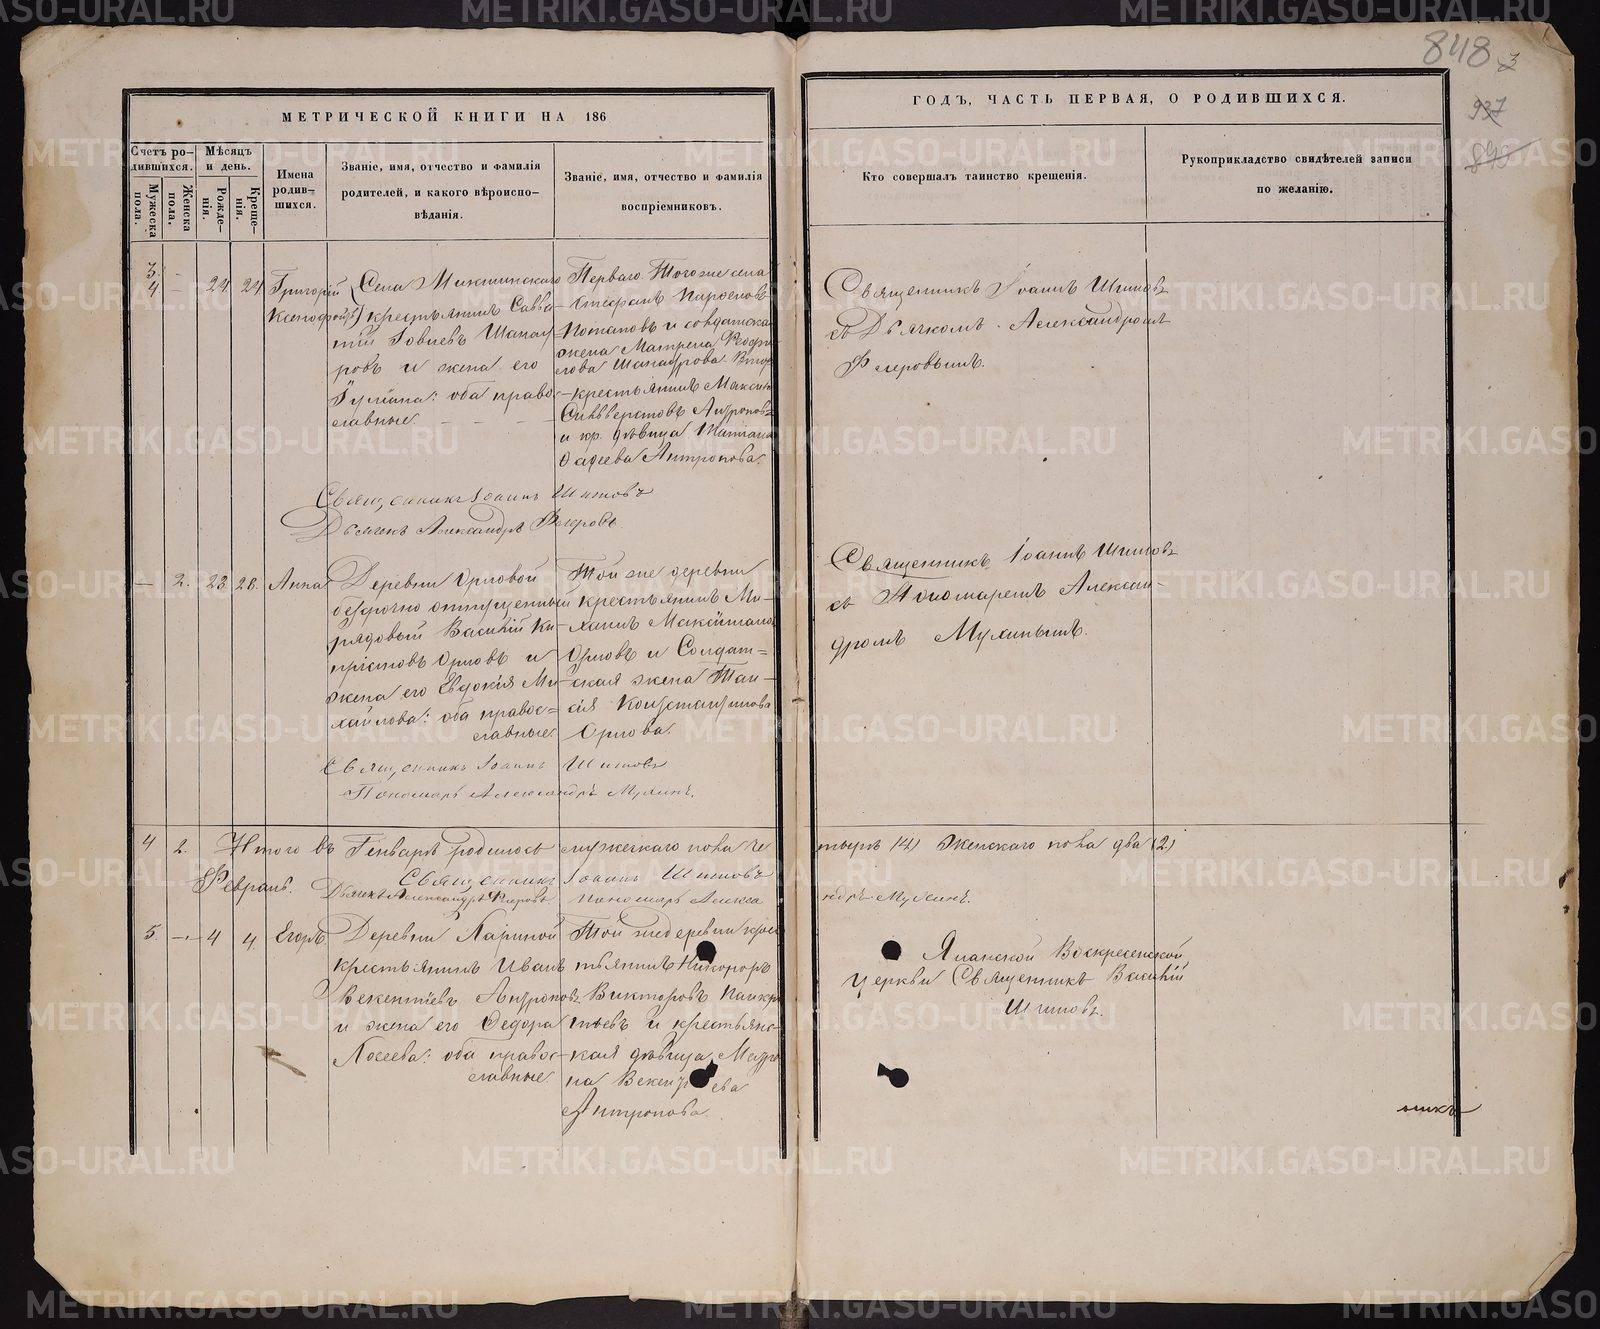 848 3
937
849
МЕТРИЧЕСКОЙ КНИГИ НА 186
ГОДЪ, ЧАСТЬ ПЕРВАЯ, О РОДИВШИХСЯ.
Счетъ родившихся.
Мужеска пола.
Женска пола.
Мѣсяцъ и день.
Рожденія.
Крещенія.
Имена родившихся.
Званіе, имя, отчество и фамилія
родителей, и какого вѣроисповѣданія.
Званіе, имя, отчество и фамилія
воспріемниковъ.
Кто совершалъ таинство крещенія.
Рукоприкладство свидѣтелей записи
по желанію.
3. 4 — 24 24 Григорій
Села
крестьянинъ Савва-
ровъ и жена его
оба право-
славные.
Перваго Того же села
Стефанъ
Потаповъ и солдатская
жена Матрена
крестьянинъ Максимъ
Антроповъ
и кр. дѣвица
Антропова.
Священникъ Іоаннъ Шишовъ
съ Дьячкомъ Александромъ
Флеровымъ.
Священникъ Іоаннъ Шишовъ
Дьячекъ Александръ Флеровъ.
— 2. 23. 28. Анна
Деревни Орловой
безсрочно отпущенный
рядовый Василій Ки-
пріяновъ Орловъ и
жена его Евдокія Ми-
хайлова: оба правос-
славные.
Той же деревни
крестьянинъ Ми-
хаилъ
Орловъ и Солдат-
ская жена Таи-
сія Константинова
Орлова.
Священникъ Іоаннъ Шишовъ
съ Пономаремъ Алексан-
дромъ Мухинымъ.
Священникъ Іоаннъ Шишовъ
Пономарь Александръ Мухинъ.
4 2. Итого въ Генварѣ родилось мужескаго пола че
тыре (4) Женскаго пола два (2)
Священникъ Іоаннъ Шишовъ
Февраль. Дьячекъ Александръ Флеровъ. пономарь Алекса
ндръ Мухинъ.
5. — 4 4. Егоръ
Деревни Лариной
крестьянинъ Иванъ
Викентіевъ Антроповъ
и жена его Федора
оба правос-
славные.
Той же деревни крес
тьянинъ Никоноръ
Викторовъ
и крестьянс-
кая дѣвица
на
Антропова.
Яланской Воскресенской
церкви Священникъ Василій
Шишовъ.
METRIKI.GASO-URAL.RU